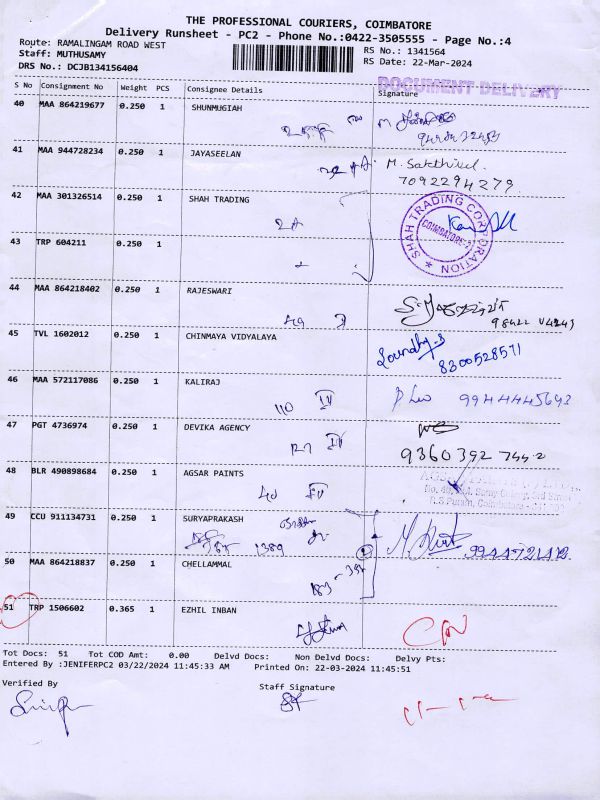 THE PROFESSIONAL COURIERS, COIMBATORE
Delivery Runsheet - PC2 - Phone No.:0422-3505555 - Page No.:4
Route: RAMALINGAM ROAD WEST
RS No.: 1341564
Staff: MUTHUSAMY
RS Date: 22-Mar-2024
DRS No.: DCJB134156404
DOCUMENT DELIVERY
S No Consignment No Weight PCS Consignee Details Signature
40 MAA 864219677 0.250 1 SHUNMUGIAH
41 MAA 944728234 0.250 1 JAYASEELAN
M. Sakthivel.
7092294279
42 MAA 301326514 0.250 1 SHAH TRADING
SHAH TRADING CORPORATION
COIMBATORE-2
43 TRP 604211 0.250 1
44 MAA 864218402 0.250 1 RAJESWARI
45 TVL 1602012 0.250 1 CHINMAYA VIDYALAYA
Soundhy.S
8300528571
46 MAA 572117086 0.250 1 KALIRAJ
110 IV
9944445693
47 PGT 4736974 0.250 1 DEVIKA AGENCY
127 IV
9360392744.2
48 BLR 490898684 0.250 1 AGSAR PAINTS
40 IV
49 CCU 911134731 0.250 1 SURYAPRAKASH
1389
9944721412
50 MAA 864218837 0.250 1 CHELLAMMAL
51 TRP 1506602 0.365 1 EZHIL INBAN
Tot Docs: 51 Tot COD Amt: 0.00 Delvd Docs: Non Delvd Docs: Delvy Pts:
Entered By :JENIFERPC2 03/22/2024 11:45:33 AM Printed On: 22-03-2024 11:45:51
Verified By
Staff Signature